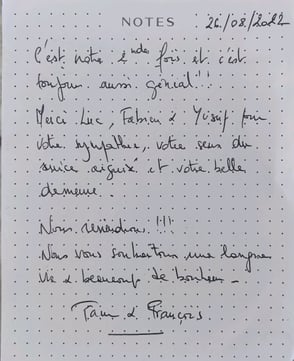 NOTES 26/08/2022
C'est notre 2nde fois et c'est
toujours aussi génial!!!
Merci Luc, Fabien & Yusuf pour
votre sympathie, votre sens du
service aiguisé et votre belle
demeure.
Nous reviendrons!!!
Nous vous souhaitons une longue
vie & beaucoup de bonheur_
& François